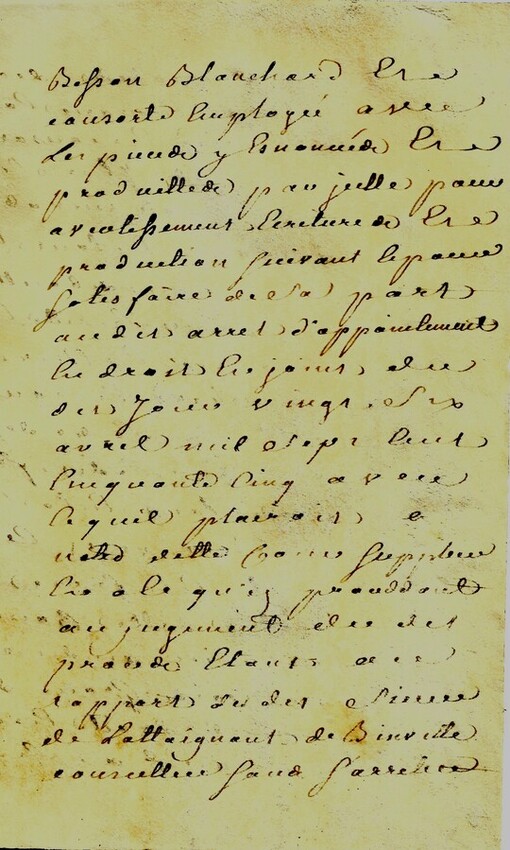 Besson Blanchard Et
consorts Employé avec
Les pieces y Enoncées Et
produittes par jcelle pour
avertissement Ecritures Et
production suivant le pour
satisfaire de sa part
audit arret d'appointement
En droit En jointe du
dit jour vingt six
avril mil sept Cent
Cinquante Cinq avec
ce quil plairoit a
notre ditte Cour suppleer
En ce qu'en procedant
au jugement du dit
procès Etant au
rapport du dit sieur
de Lattaignant de Bainville
conseiller sans sarreter